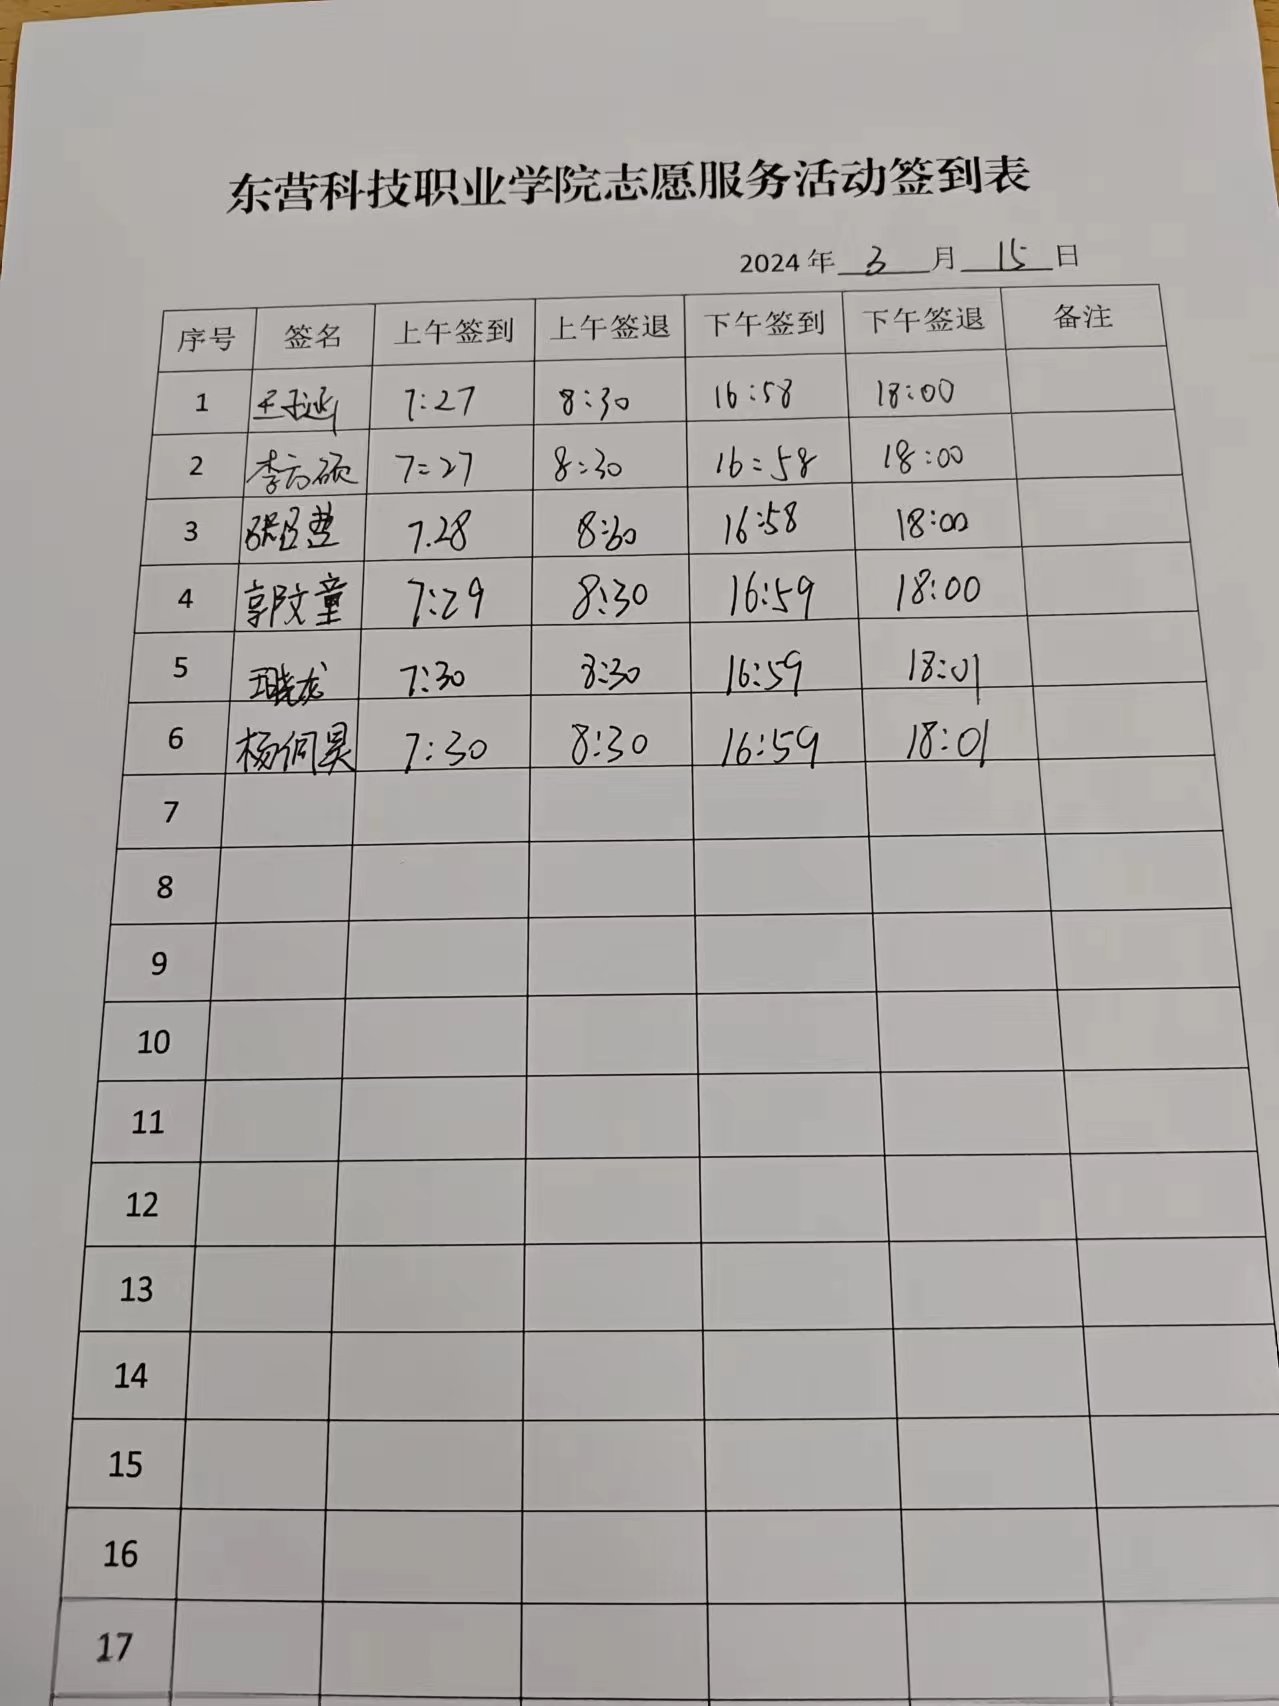 东营科技职业学院志愿服务活动签到表
2024 年 3 月 15 日
序号 签名 上午签到 上午签退 下午签到 下午签退 备注
1 7:27 8:30 16:58 18:00
2 7:27 8:30 16:58 18:00
3 7.28 8:30 16:58 18:00
4 郭文童 7:29 8:30 16:59 18:00
5 晓龙 7:30 8:30 16:59 18:01
6 杨何昊 7:30 8:30 16:59 18:01
7
8
9
10
11
12
13
14
15
16
17